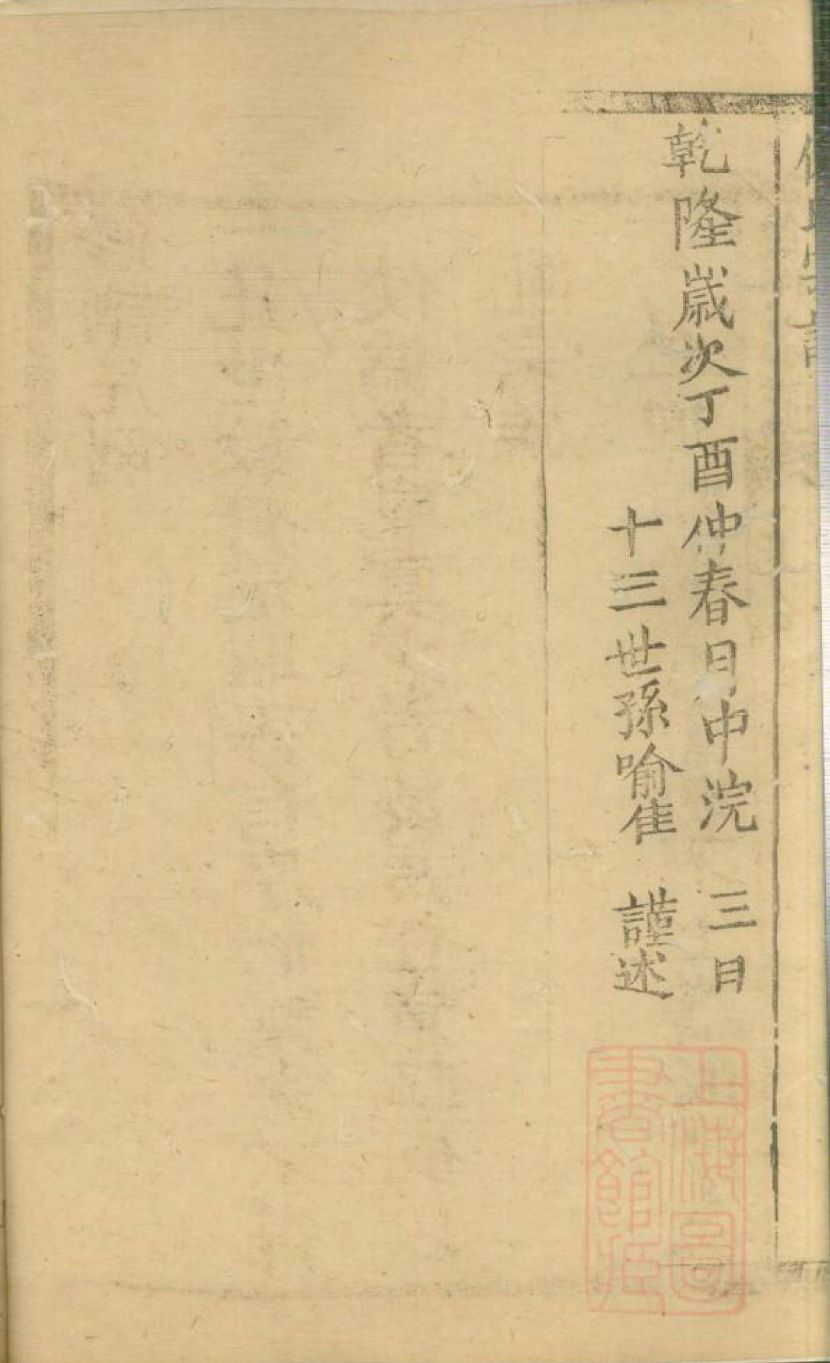 乾隆歲次丁酉仲春月中浣 三日
十三世孫喻隹 謹述
上海圖
書館藏